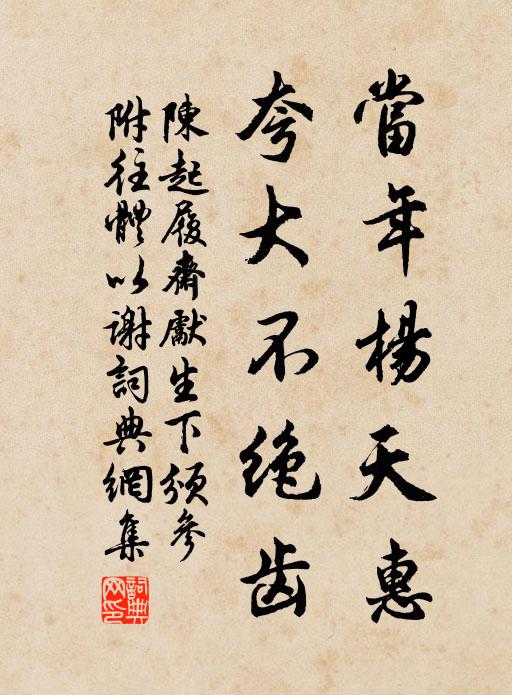 當年楊天惠
夸大不绝齿
陳起履齋獻生下頒參
附往體以谢詞典網集
詞典网印